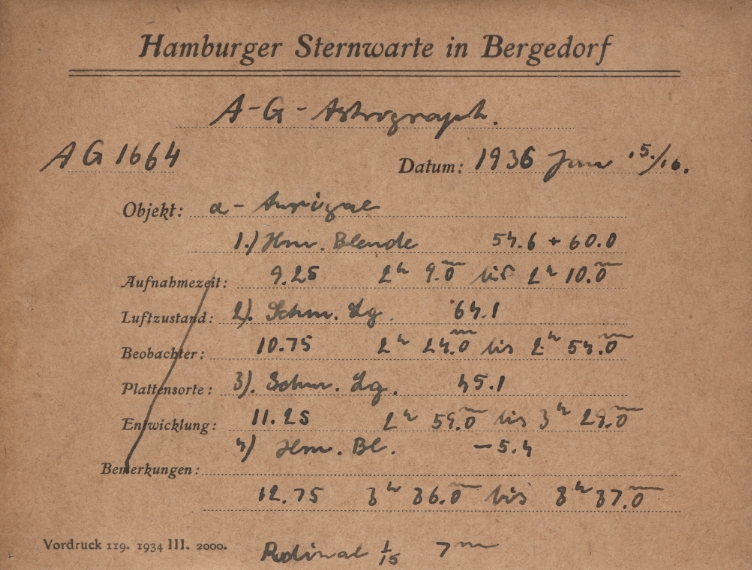 Hamburger Sternwarte in Bergedorf
A-G-Astrograph.
AG 1664
Datum: 1936 Jan 15./16.
Objekt: α- Aurigae
1.) Hm. Blende 54.6 + 60.0
Aufnahmezeit: 9.25 2h 9.0m bis 2h 10.0m
Luftzustand: 2). Schm. Lg. 64.1
Beobachter: 10.75 2h 24.0m bis 2h 54.0m
Plattensorte: 3). Schm. Lg. 45.1
Entwicklung: 11.25 2h 59.0m bis 3h 29.0m
4) Hm. Bl. -5.4
Bemerkungen:
12.75 3h 36.0m bis 3h 37.0m
Vordruck 119. 1934 III. 2000.
Rodinal 1/15 7m